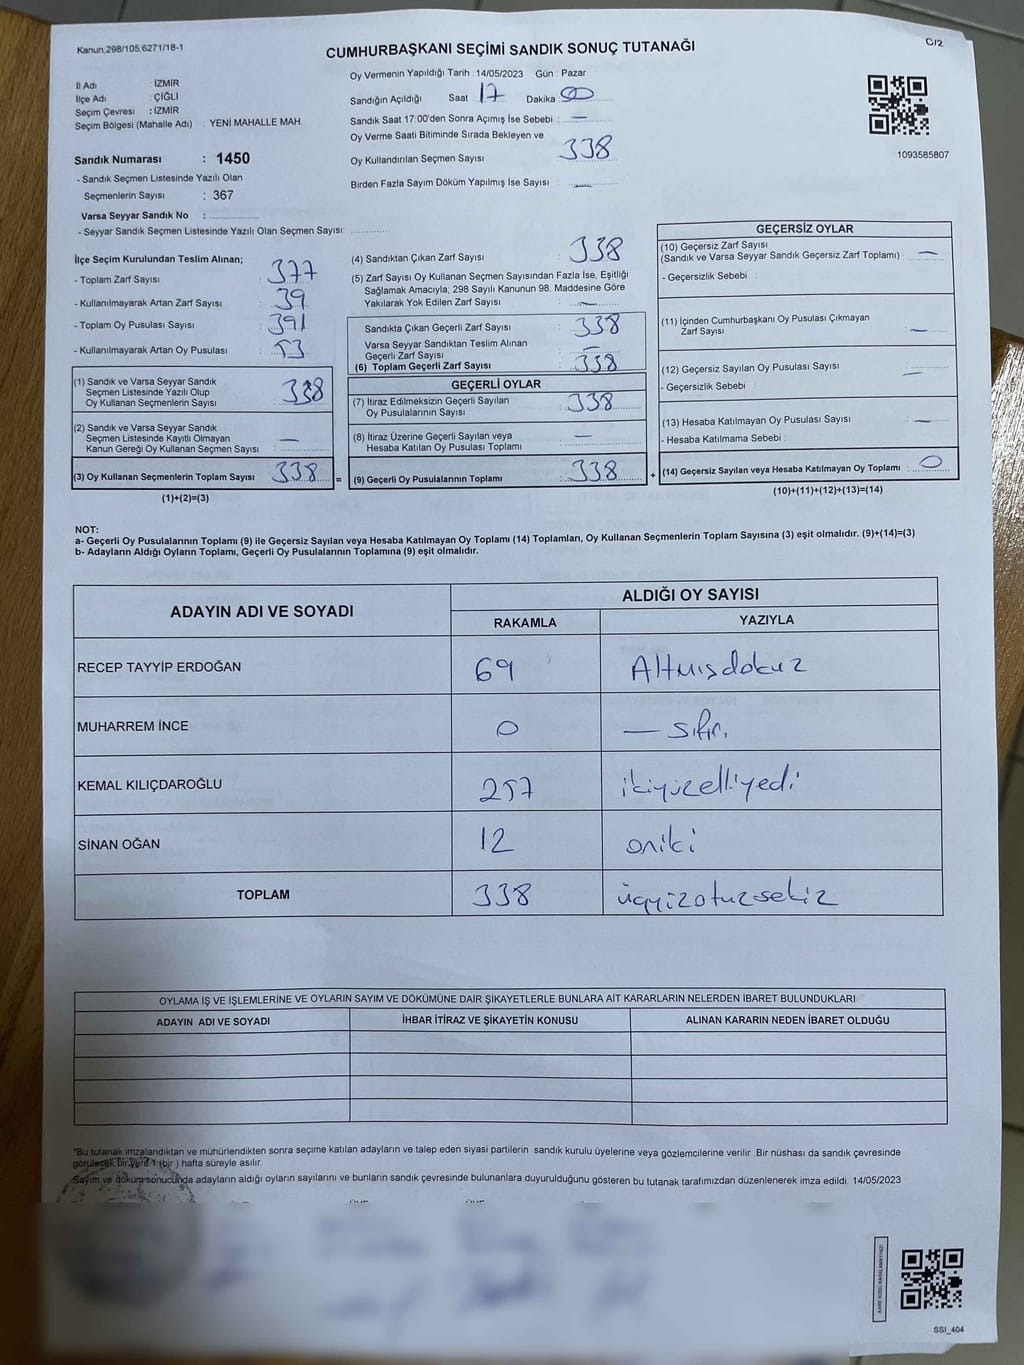 Kanun;298/105;6271/18-1
CUMHURBAŞKANI SEÇİMİ SANDIK SONUÇ TUTANAĞI
C/2
İl Adı : İZMİR
İlçe Adı : ÇİĞLİ
Seçim Çevresi : İZMİR
Seçim Bölgesi (Mahalle Adı) : YENİ MAHALLE MAH.
Oy Vermenin Yapıldığı Tarih : 14/05/2023 Gün : Pazar
Sandığın Açıldığı Saat 17 Dakika : 00
Sandık Saat 17:00'den Sonra Açımış İse Sebebi : —
Oy Verme Saati Bitiminde Sırada Bekleyen ve
Oy Kullandırılan Seçmen Sayısı : 338
Birden Fazla Sayım Döküm Yapılmış İse Sayısı : —
1093585807
Sandık Numarası : 1450
- Sandık Seçmen Listesinde Yazılı Olan
Seçmenlerin Sayısı : 367
Varsa Seyyar Sandık No :
- Seyyar Sandık Seçmen Listesinde Yazılı Olan Seçmen Sayısı:
İlçe Seçim Kurulundan Teslim Alınan;
- Toplam Zarf Sayısı : 377
- Kullanılmayarak Artan Zarf Sayısı : 39
- Toplam Oy Pusulası Sayısı : 391
- Kullanılmayarak Artan Oy Pusulası : 53
(1) Sandık ve Varsa Seyyar Sandık
Seçmen Listesinde Yazılı Olup
Oy Kullanan Seçmenlerin Sayısı : 338
(2) Sandık ve Varsa Seyyar Sandık
Seçmen Listesinde Kayıtlı Olmayan
Kanun Gereği Oy Kullanan Seçmen Sayısı : —
(3) Oy Kullanan Seçmenlerin Toplam Sayısı : 338
(1)+(2)=(3)
(4) Sandıktan Çıkan Zarf Sayısı : 338
(5) Zarf Sayısı Oy Kullanan Seçmen Sayısından Fazla İse, Eşitliği
Sağlamak Amacıyla; 298 Sayılı Kanunun 98. Maddesine Göre
Yakılarak Yok Edilen Zarf Sayısı : —
Sandıkta Çıkan Geçerli Zarf Sayısı : 338
Varsa Seyyar Sandıktan Teslim Alınan
Geçerli Zarf Sayısı : —
(6) Toplam Geçerli Zarf Sayısı : 338
GEÇERLİ OYLAR
(7) İtiraz Edilmeksizin Geçerli Sayılan
Oy Pusulalarının Sayısı : 338
(8) İtiraz Üzerine Geçerli Sayılan veya
Hesaba Katılan Oy Pusulası Toplamı : —
= (9) Geçerli Oy Pusulalarının Toplamı : 338
GEÇERSİZ OYLAR
(10) Geçersiz Zarf Sayısı
(Sandık ve Varsa Seyyar Sandık Geçersiz Zarf Toplamı) : —
- Geçersizlik Sebebi :
(11) İçinden Cumhurbaşkanı Oy Pusulası Çıkmayan
Zarf Sayısı : —
(12) Geçersiz Sayılan Oy Pusulası Sayısı : —
- Geçersizlik Sebebi :
(13) Hesaba Katılmayan Oy Pusulası Sayısı : —
- Hesaba Katılmama Sebebi :
+ (14) Geçersiz Sayılan veya Hesaba Katılmayan Oy Toplamı : 0
(10)+(11)+(12)+(13)=(14)
NOT:
a- Geçerli Oy Pusulalarının Toplamı (9) ile Geçersiz Sayılan veya Hesaba Katılmayan Oy Toplamı (14) Toplamları, Oy Kullanan Seçmenlerin Toplam Sayısına (3) eşit olmalıdır. (9)+(14)=(3)
b- Adayların Aldığı Oyların Toplamı, Geçerli Oy Pusulalarının Toplamına (9) eşit olmalıdır.
ADAYIN ADI VE SOYADI
ALDIĞI OY SAYISI
RAKAMLA YAZIYLA
RECEP TAYYİP ERDOĞAN 69 Altmışdokuz
MUHARREM İNCE 0 — sıfır.
KEMAL KILIÇDAROĞLU 257 ikiyüzelliyedi
SİNAN OĞAN 12 oniki
TOPLAM 338 üçyüzotuzsekiz
OYLAMA İŞ VE İŞLEMLERİNE VE OYLARIN SAYIM VE DÖKÜMÜNE DAİR ŞİKAYETLERLE BUNLARA AİT KARARLARIN NELERDEN İBARET BULUNDUKLARI
ADAYIN ADI VE SOYADI İHBAR İTİRAZ VE ŞİKAYETİN KONUSU ALINAN KARARIN NEDEN İBARET OLDUĞU
*Bu tutanak imzalandıktan ve mühürlendikten sonra seçime katılan adayların ve talep eden siyasi partilerin sandık kurulu üyelerine veya gözlemcilerine verilir .Bir nüshası da sandık çevresinde
görülecek bir yere 1 (bir ) hafta süreyle asılır.
Sayım ve döküm sonucunda adayların aldığı oyların sayılarını ve bunların sandık çevresinde bulunanlara duyurulduğunu gösteren bu tutanak tarafımızdan düzenlenerek imza edildi. 14/05/2023
SSI_404